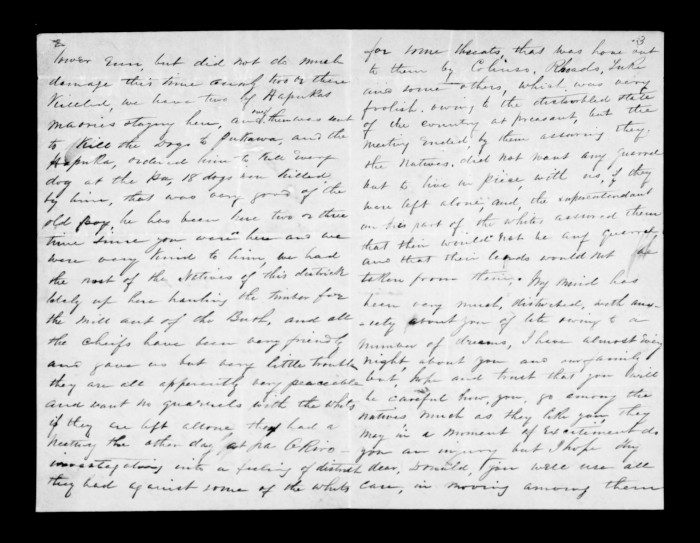 2
lower Enn, but did not do much
damage this time only two or three
killed, we have two of Hapukas
Maories staying here, and one of them was sent
to Kill the Dogs to Puttawa, and the
Hapuka, ordered him to Kill Every
dog at the Pa, 18 dogs were killed
by him, that was very good of the
old Boy, he has been here two or three
time since you were here and we
were very kind to him, we had
the most of the Natives of this district
lately up here hauling the timber for
the Mill out of the Bush, and all
the chiefs have been very friendly
and gave us but very little trouble
they are all apperently very peaceable
and want no quarrels with the Whites
if they are left allone, they had a
Meeting the other day, at pa
into a feeling of distrust
they had against some of the whites
3
for some threats, that was hove out
to them by Colinso, Rhoads, Tuke
and some others, which was very
foolish, owing to the disturbled state
of the country at preasant, but the
meeting Ended by them assuring they
the Natives, did not want any quarrel
but to live in piece, with us, if they
were left alone, and, the superatendant
on his part of the whites assured them
that their would not be any quarrel,
and that their lands would not be
taken from them, My Mind has
been very much, disturbed, with anx-
-iety about you of late owing to a
number of dreams, I have almost Every
night about you and our family
but, hope and trust that you will
be careful how, you, go among the
natives, much as they like you, they
may in a moment of Excitement do
you an injury, but I hope My
dear, Donald, you will use all
care, in moving among them